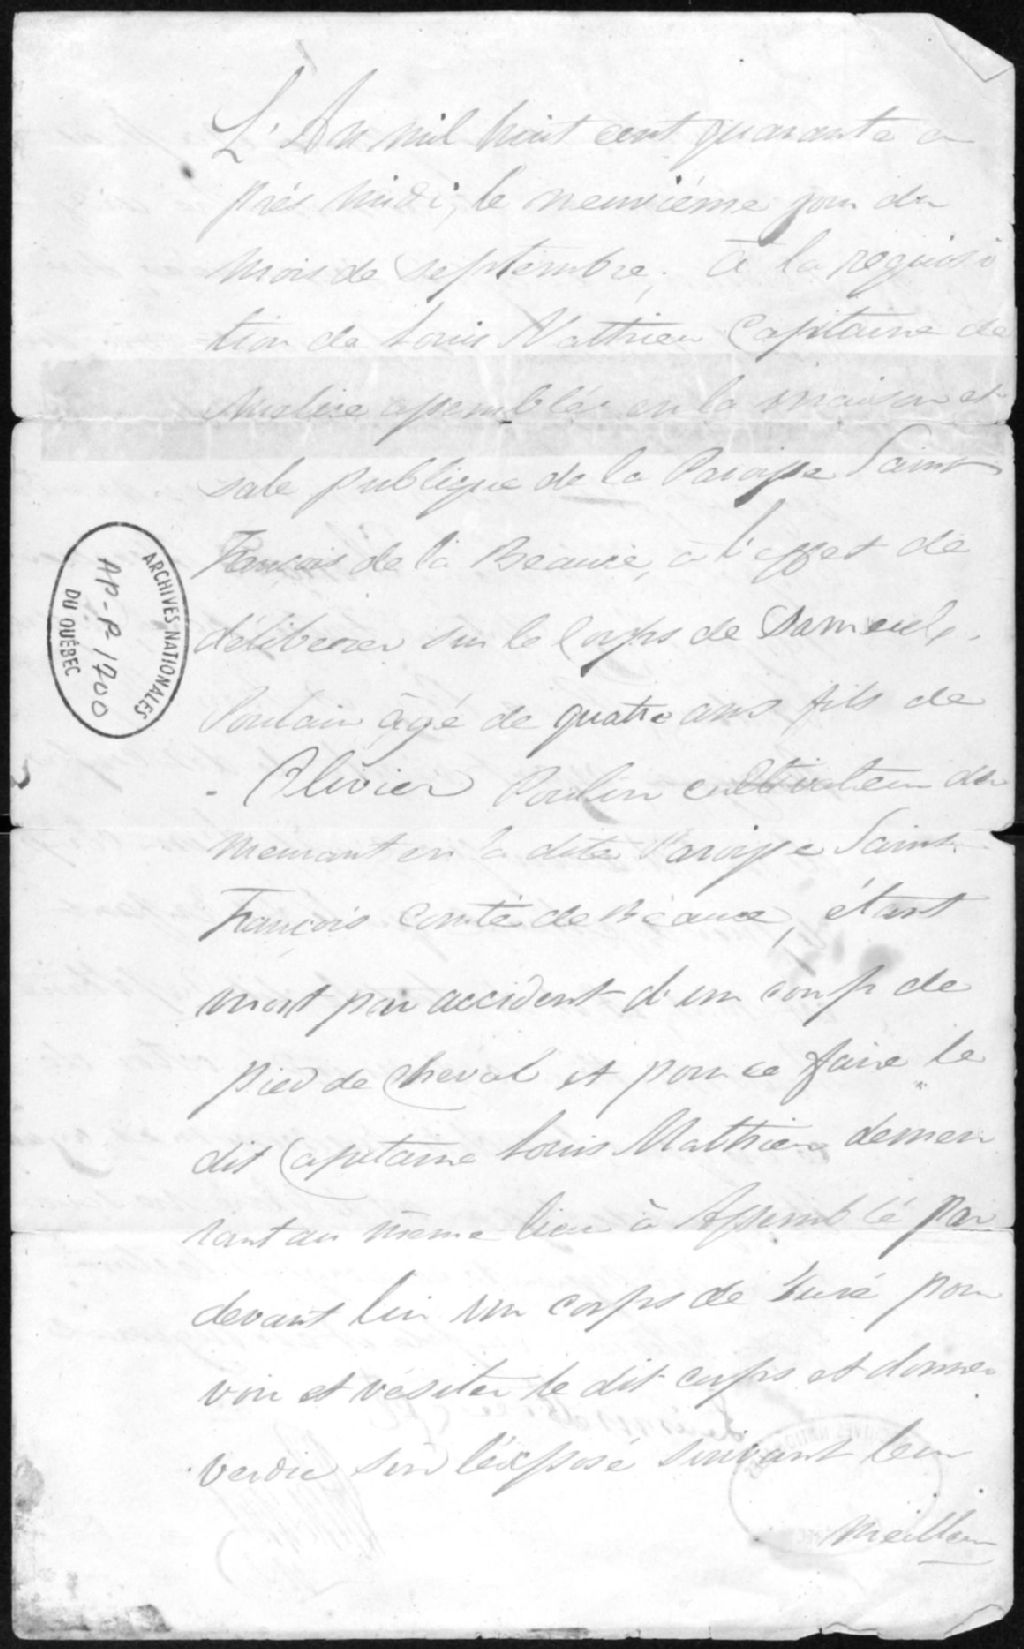 L'An mil huit cent quarante a
près midi, le neuvième jour du
mois de septembre, à la réquisi
tion de Louis Mathieu Capitaine de
Milice assemblés en la maison et
sale publique de la Paroisse Saint
François de la Beauce, à l'effet de
délibérer sur le Corps de Samuel
Poulain âgé de quatre ans fils de
Olivier Poulin cultivateur de
meurant en la dite Paroisse Saint
François Comté de Beauce, étant
mort par accident d'un coup de
pied de cheval et pour ce faire le
dit Capitaine Louis Mathieu demeu
rant au même lieu à Assemblé par
devant lui un corps de Juré pour
voir et visiter le dit corps et donner
verdic sur l'exposé suivant leur
meilleur
ARCHIVES NATIONALES
AP-P 1700
DU QUÉBEC